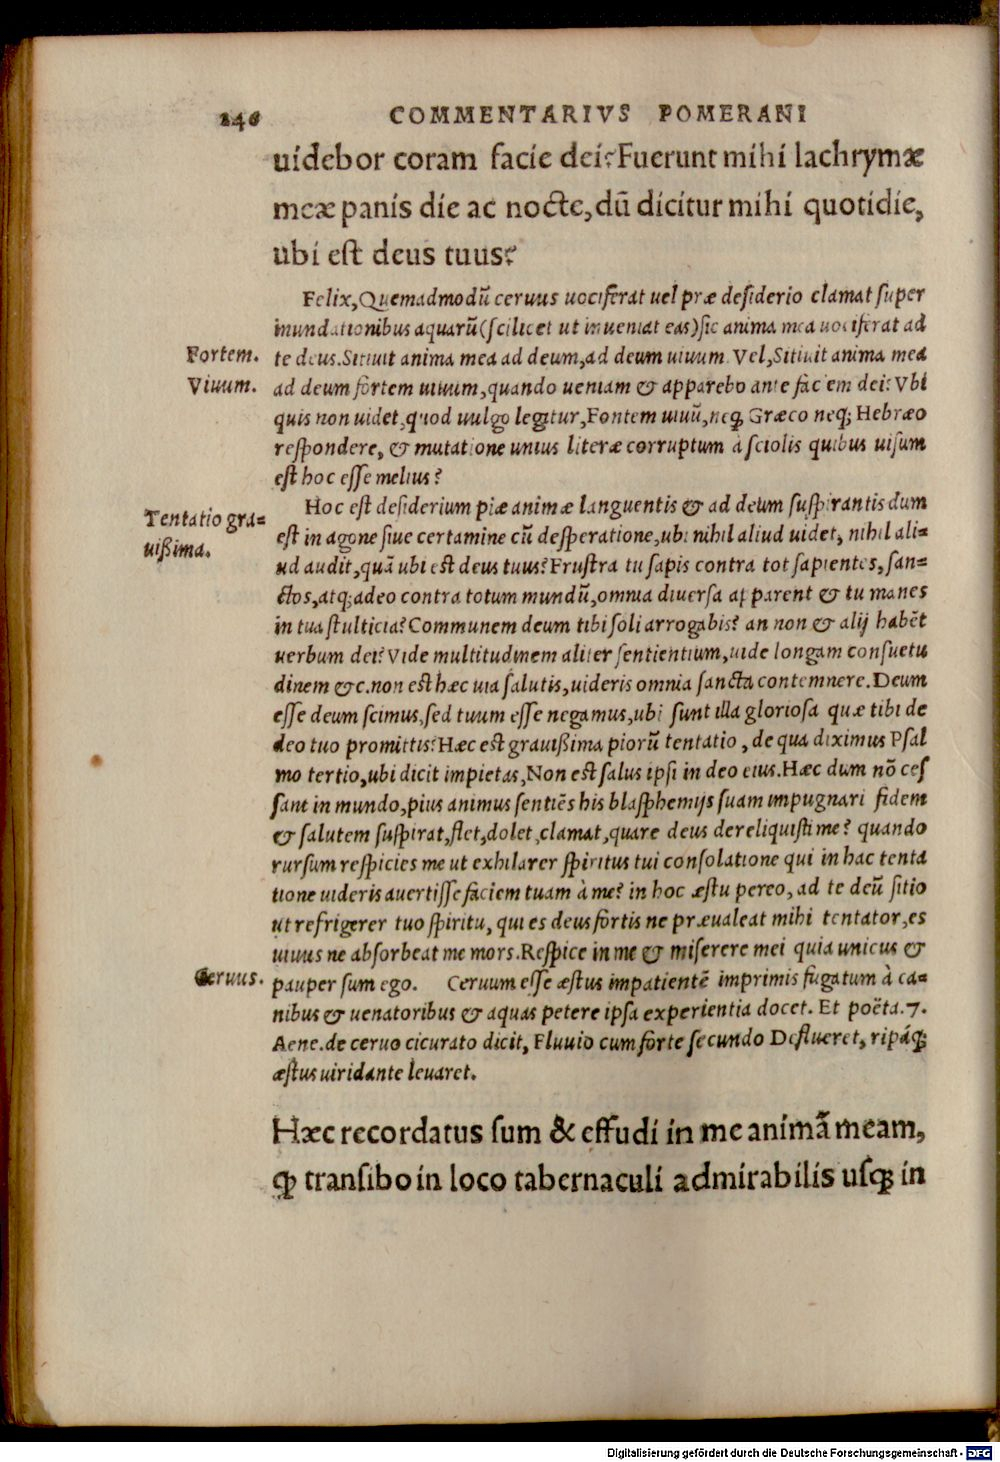 246 COMMENTARIVS POMERANI
uidebor coram facie dei? Fuerunt mihi lachrymæ
meæ panis die ac nocte, dũ dicitur mihi quotidie,
ubi est deus tuus?
Felix, Quemadmodũ ceruus uociferat uel præ desiderio clamat super
inundationibus aquarũ (scilicet ut inueniat eas) sic anima mea uociferat ad
Fortem. te deus. Sitiuit anima mea ad deum, ad deum uiuum. Vel, Sitiuit anima mea
Viuum. ad deum fortem uiuum, quando ueniam & apparebo ante faciem dei? Vbi
quis non uidet, quod uulgo legitur, Fontem uiuũ, neq; Græco neq; Hebræo
respondere, & mutatione unius literæ corruptum à sciolis quibus uisum
est hoc esse melius?
Hoc est desiderium piæ animæ languentis & ad deum suspirantis dum
Tentatio gra=
uißima.
est in agone siue certamine cũ desperatione, ubi nihil aliud uidet, nihil ali=
ud audit, quã ubi est deus tuus? Frustra tu sapis contra tot sapientes, san=
ctos, atq; adeo contra totum mundũ, omnia diuersa apparent & tu manes
in tua stulticia? Communem deum tibi soli arrogabis? an non & alij habẽt
uerbum dei? Vide multitudinem aliter sentientium, uide longam consuetu
dinem &c. non est hæc uia salutis, uideris omnia sancta contemnere. Deum
esse deum scimus, sed tuum esse negamus, ubi sunt illa gloriosa quæ tibi de
deo tuo promittis? Hæc est grauißima piorũ tentatio, de qua diximus Psal
mo tertio, ubi dicit impietas, Non est salus ipsi in deo eius. Hæc dum nõ ces
sant in mundo, pius animus sentiẽs his blasphemijs suam impugnari fidem
& salutem suspirat, flet, dolet, clamat, quare deus dereliquisti me? quando
rursum respicies me ut exhilarer spiritus tui consolatione qui in hac tenta
tione uideris auertisse faciem tuam à me? in hoc æstu pereo, ad te deũ sitio
ut refrigerer tuo spiritu, qui es deus fortis ne præualeat mihi tentator, es
uiuus ne absorbeat me mors. Respice in me & miserere mei quia unicus &
Ceruus. pauper sum ego. Ceruum esse æstus impatientẽ imprimis fugatum à ca=
nibus & uenatoribus & aquas petere ipsa experientia docet. Et poëta. 7.
Aene. de ceruo cicurato dicit, Fluuio cum forte secundo Deflueret, ripáq;
æstus uiridante leuaret.
Hæc recordatus sum & effudi in me animã meam,
ꝙ transibo in loco tabernaculi admirabilis usq; in
Digitalisierung gefördert durch die Deutsche Forschungsgemeinschaft - DFG